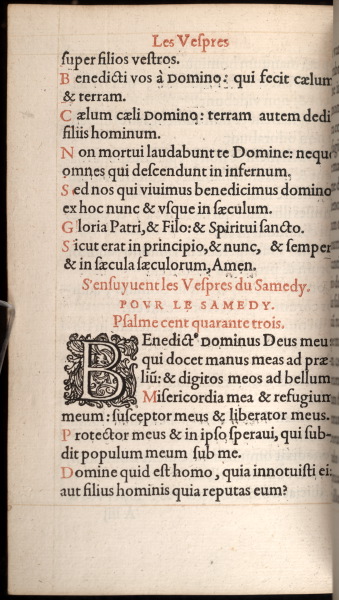 Les Vespres
ſuper filios veſtros.
Benedicti vos à DOMINO: qui fecit cælum
& terram.
Cælum cæli DOMINO: terram autem dedi
filiis hominum.
Non mortui laudabunt te Domine: neque
omnes qui deſcendunt in infernum.
Sed nos qui viuimus benedicimus domino
ex hoc nunc & vſque in ſæculum.
Gloria Patri, & Filo: & Spiritui ſancto.
Sicut erat in principio, & nunc, & ſemper
& in ſæcula ſæculorum, Amen.
S'enſuyuent les Veſpres du Samedy.
POVR LE SAMEDY.
Pſalme cent quarante trois.
BEnedictꝰ DOMINUS Deus meu
qui docet manus meas ad præ
liū: & digitos meos ad bellum
Miſericordia mea & refugium
meum: ſuſceptor meus & liberator meus.
Protector meus & in ipſo ſperaui, qui ſub-
dit populum meum ſub me.
Domine quid eſt homo, quia innotuiſti ei:
aut filius hominis quia reputas eum?